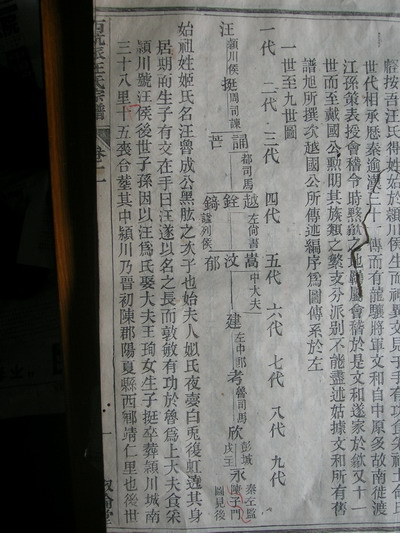 按吾汪氏得姓始於潁川侯生而神異文見于手有功食采
世代相承歷秦逾漢三十一傳而有龍驤將軍文和自中原多故南徙渡
江孫策表授會稽令時黟歙之地屬會稽於是文和遂家於歙又十一
世而至戴國公勲明其族類之繁支分派别不能盡述姑據文和所有舊
譜旭所撰次越國公所傳遞編序爲圖傳系於左
一世至九世圖
一代 二代 三代 四代 五代 六代 七代 八代 九代
汪 潁川侯 挺 周司諫 誦 都司馬 越 左尚書 嵩 中大夫
芒 銓 汶 建 左中郎 考 魯司馬 欣 彭城戍主 永 秦左監
錡 謚列侯 郁 圖見後
始祖姓姬氏名汪魯成公黑肱之次子也始夫人姒氏夜夢白兎復虹遶其身
居期而生子有文在手曰汪遂以名之長而敦敏有功於魯爲上大夫食采
潁川號汪侯後世子孫因以汪爲氏娶大夫王珣女生子挺卒葬潁川城南
三十八里十五喪台墓其中潁川乃晉初陳郡陽夏縣西鄉靖仁里也後世
汪氏宗譜 卷二 一